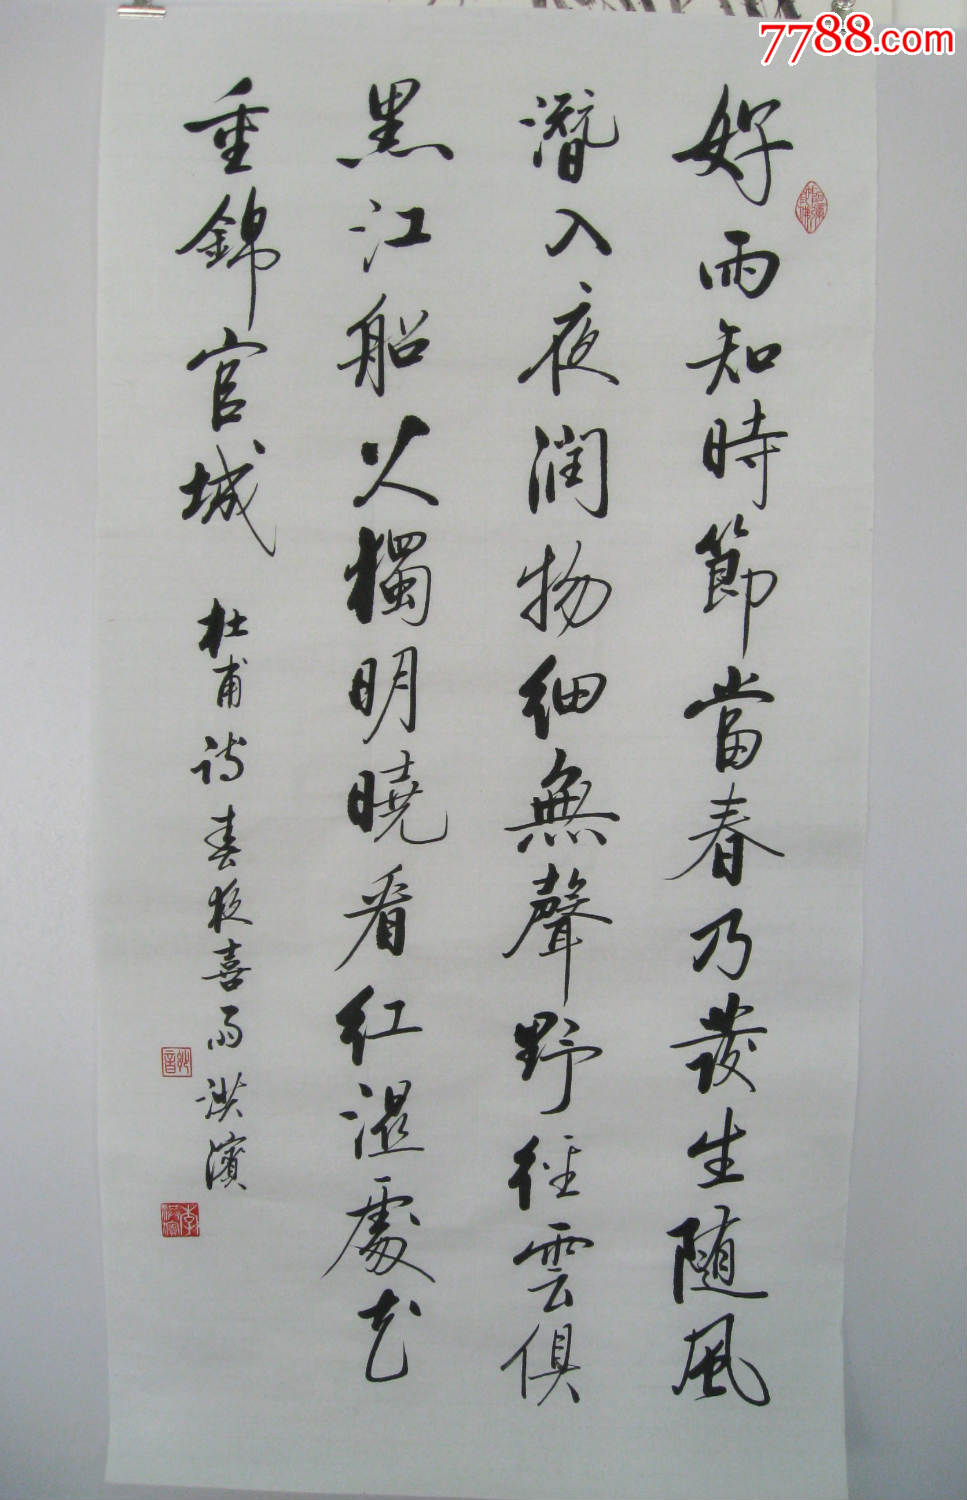 7788.com
好雨知時節當春乃發生随風
潛入夜润物细無聲野径雲俱
黑江船火獨明曉看红濕處花
重錦官城
杜甫诗春夜喜雨洪濱